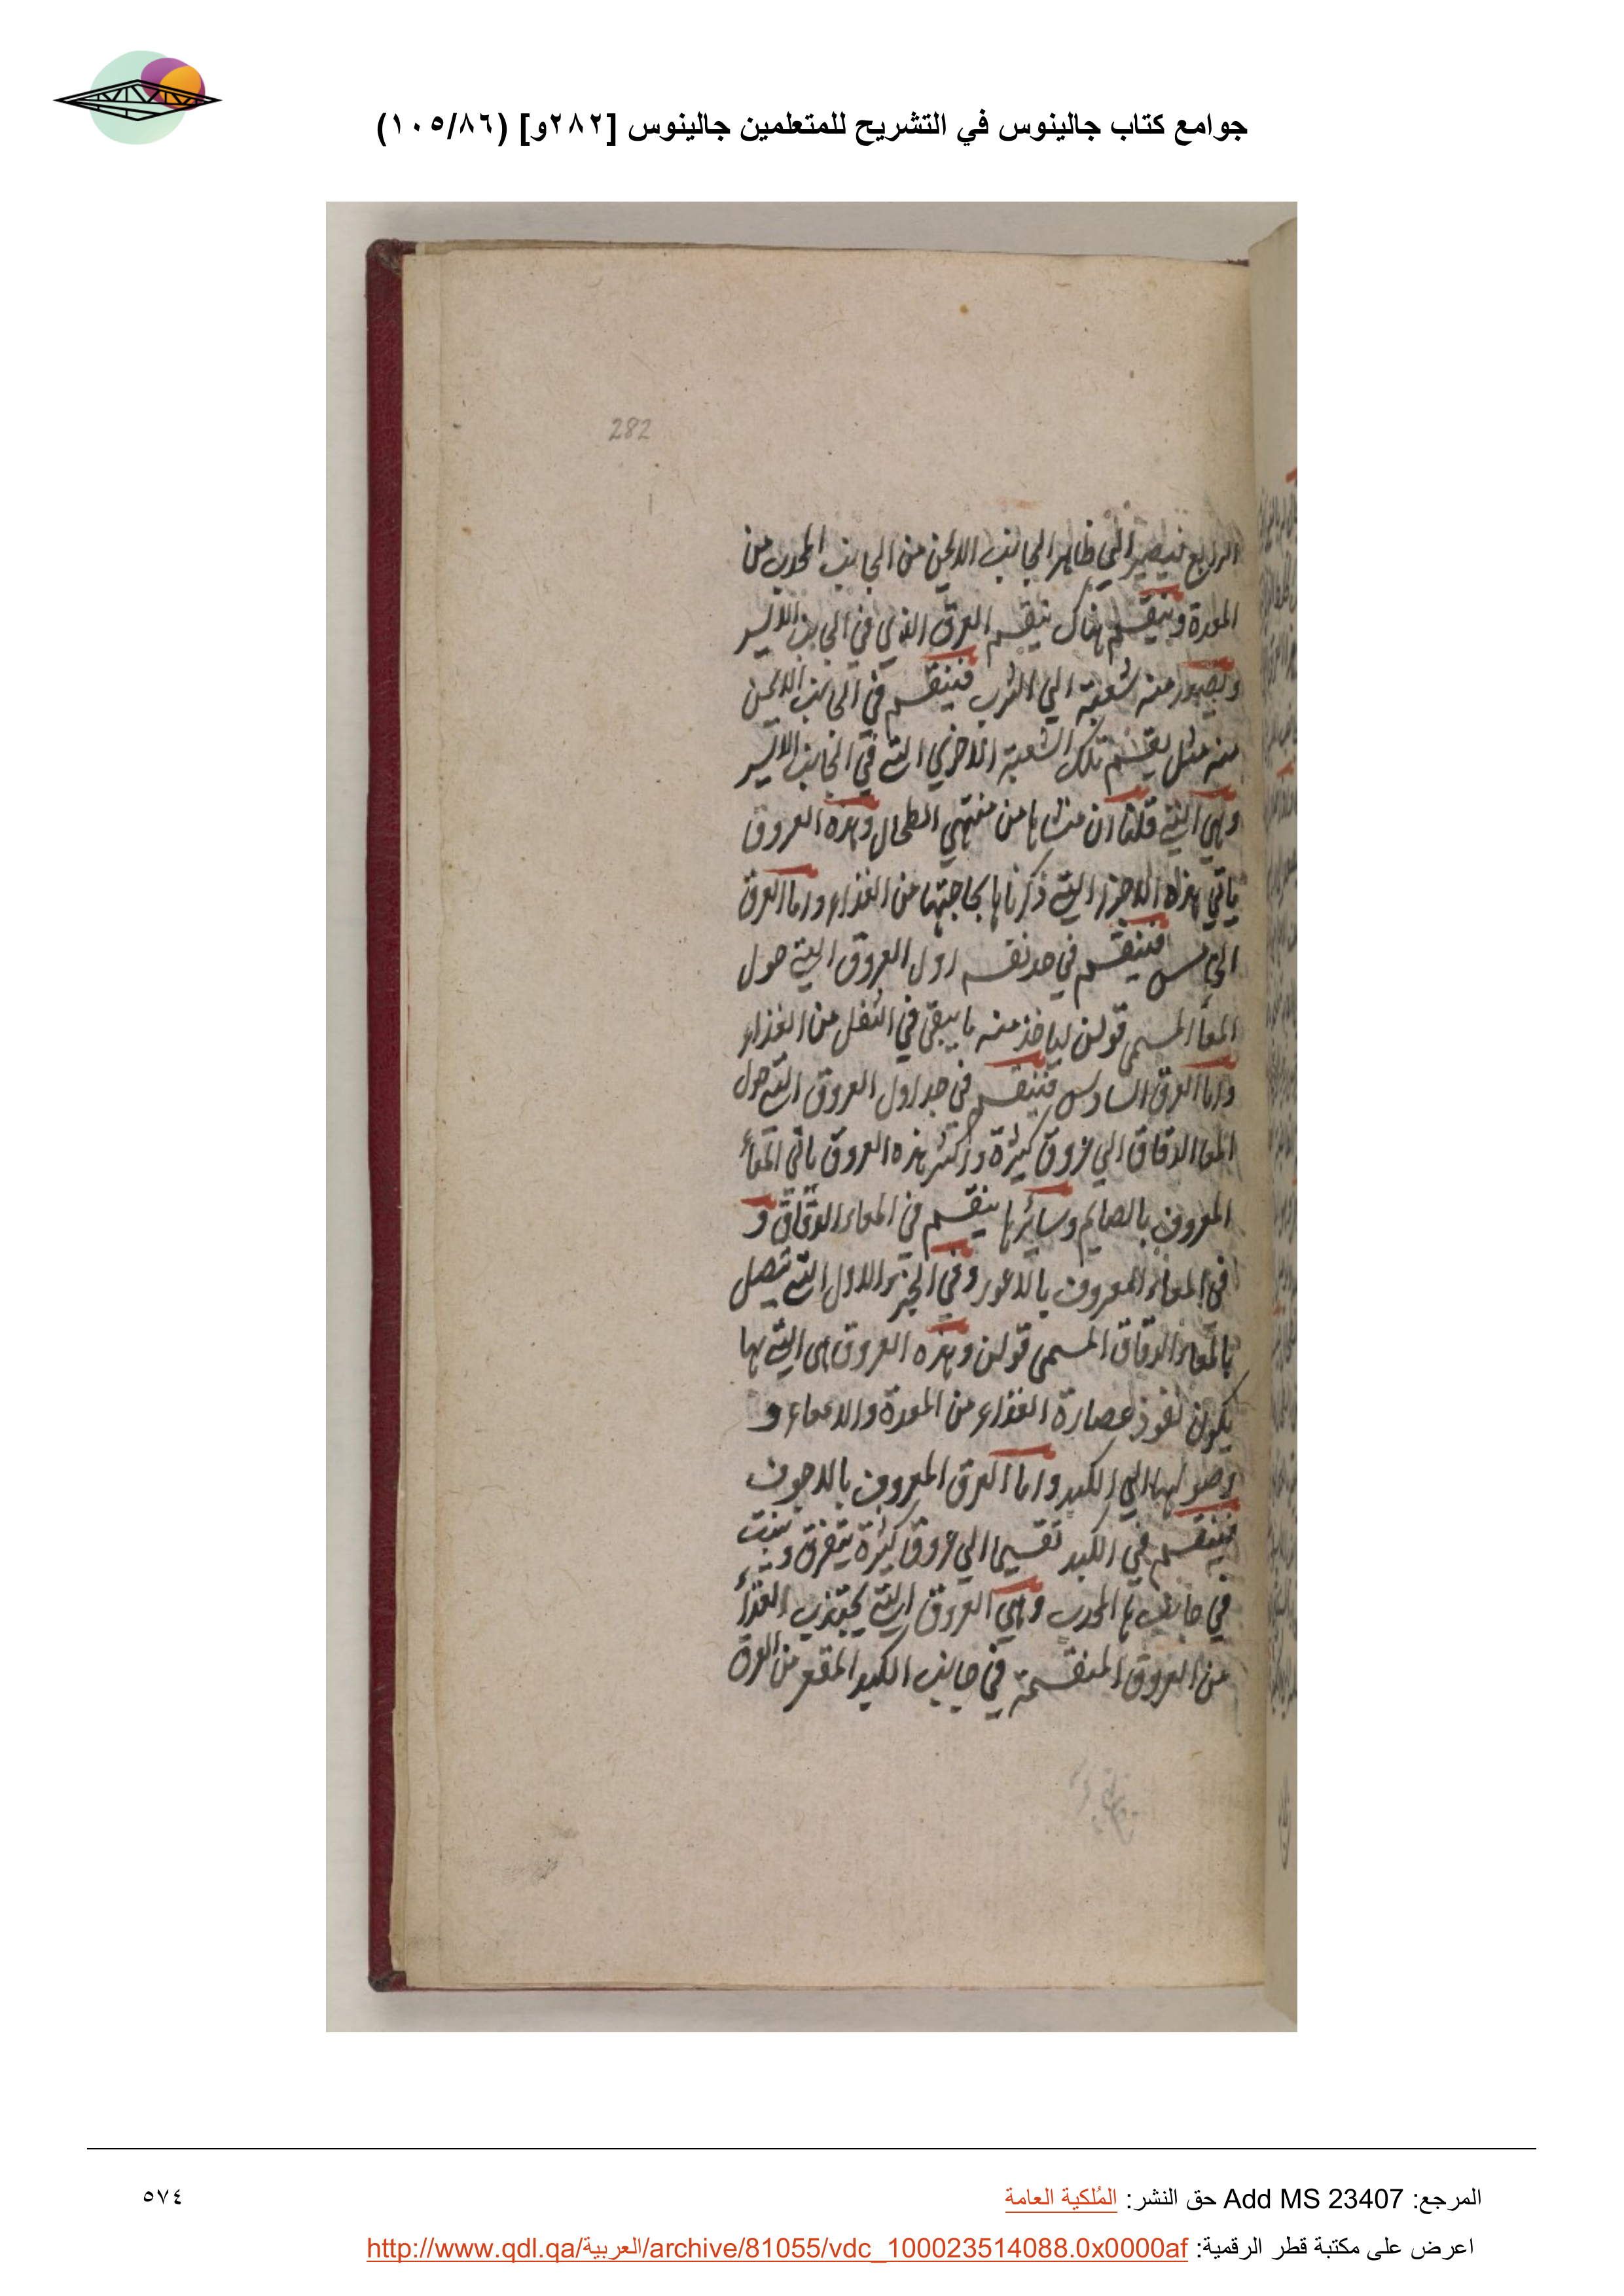 جوامع كتاب جالينوس في التشريح للمتعلمين جالينوس [٢٨٢و] (١٠٥/٨٦)
282
الرابع فيصير الي ظاهر الجانب الايمن من الجانب المحدب من
المعدة وينقسم هناك ينقسم العرق الذي في الجانب الايسر
ويصير منه شعبة الي الثرب فينقسم في الجانب الايمن
منه مثل يقسم تلك الشعبة الاخري التي في الجانب الايسر
وهي التي قلنا ان منشاها من منتهي الطحال وهذه العروق
ياتي هذه الاجزا التي ذكرناها بحاجتها من الغذاء واما العرق
الخامس فينقسم في جد نقسم اول العروق التي حول
المعا المسمي قولن لياخذ منه ما يبقي في الثفل من الغذاء
واما العرق السادس فينقسم في جداول العروق التي حول
المعا الدقاق الي عروق كثيرة واكثر هذه العروق ياتي المعاء
المعروف بالصايم وسائرها ينقسم في المعاء الدقاق و
في المعاء المعروف بالاعور وفي الجزء الاول التي تتصل
بالمعاء الدقاق المسمي قولن وهذه العروق هي التي بها
يكون نفوذ عصارة الغذاء من المعدة والامعاء و
وصولها الي الكبد واما العرق المعروف بالاجوف
فينقسم في الكبد تقسيما الي عروق كثيرة يتفرق وينبت
في جانبها المحدب وهي العروق التي يجتذب الغذاء
من العروق المنقسمة في جانب الكبد المقعر من العرق
المرجع: Add MS 23407 حق النشر: المُلكية العامة
٥٧٤
اعرض على مكتبة قطر الرقمية: http://www.qdl.qa/العربية/archive/81055/vdc_100023514088.0x0000af